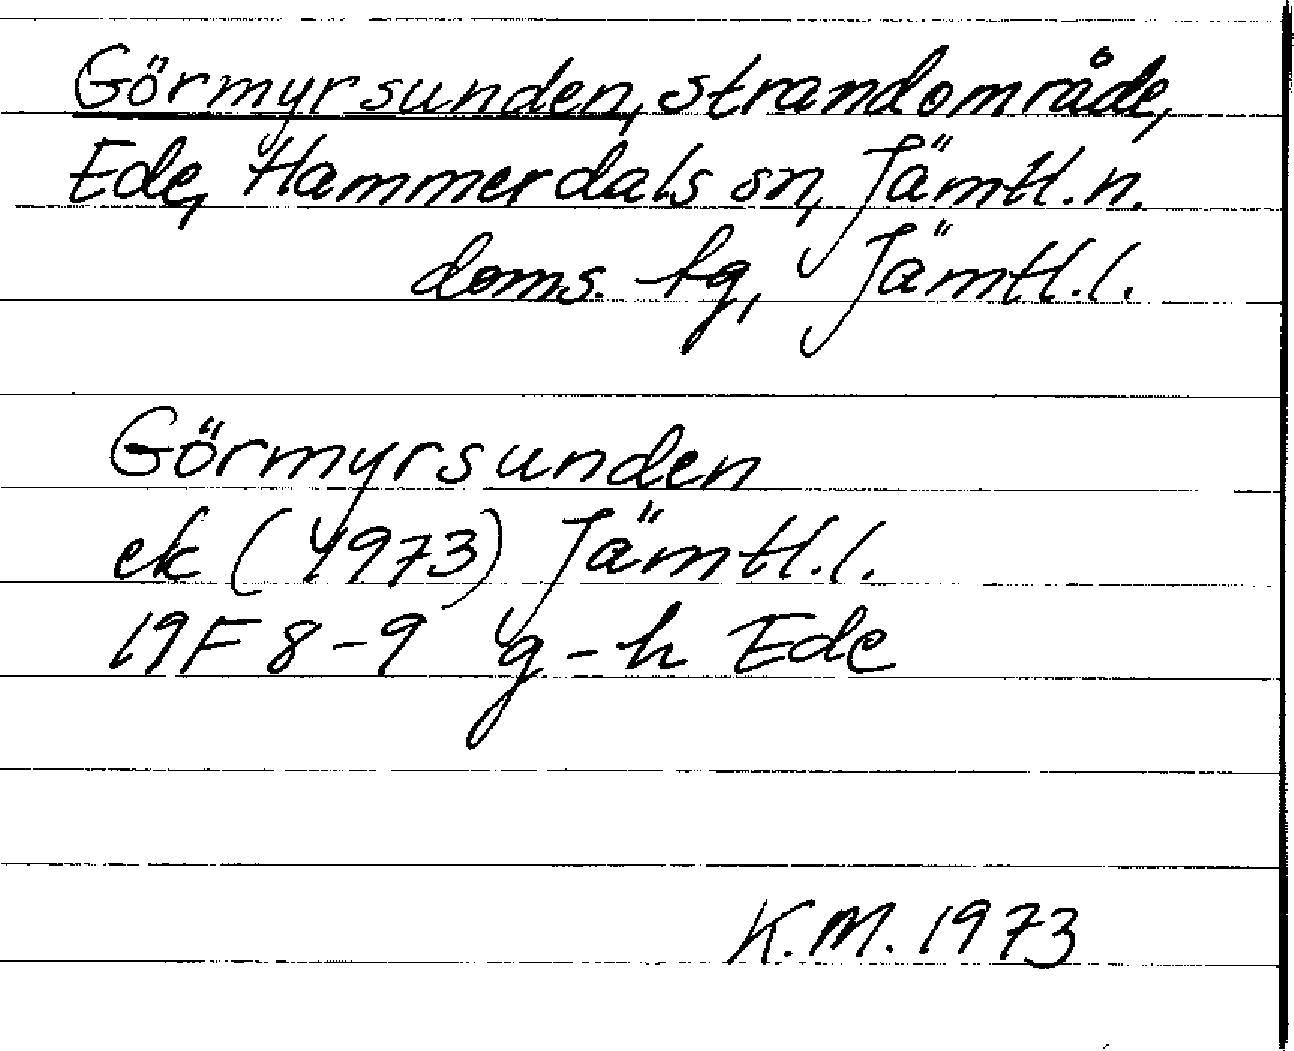 Görmyrsunden, strandområde,
Ede, Hammerdals sn, Jämtl.n.
doms. tg, Jämtl.l.
Görmyrsunden
ek (1973) Jämtl.l.
19F 8-9 g-h Ede
K.M. 1973